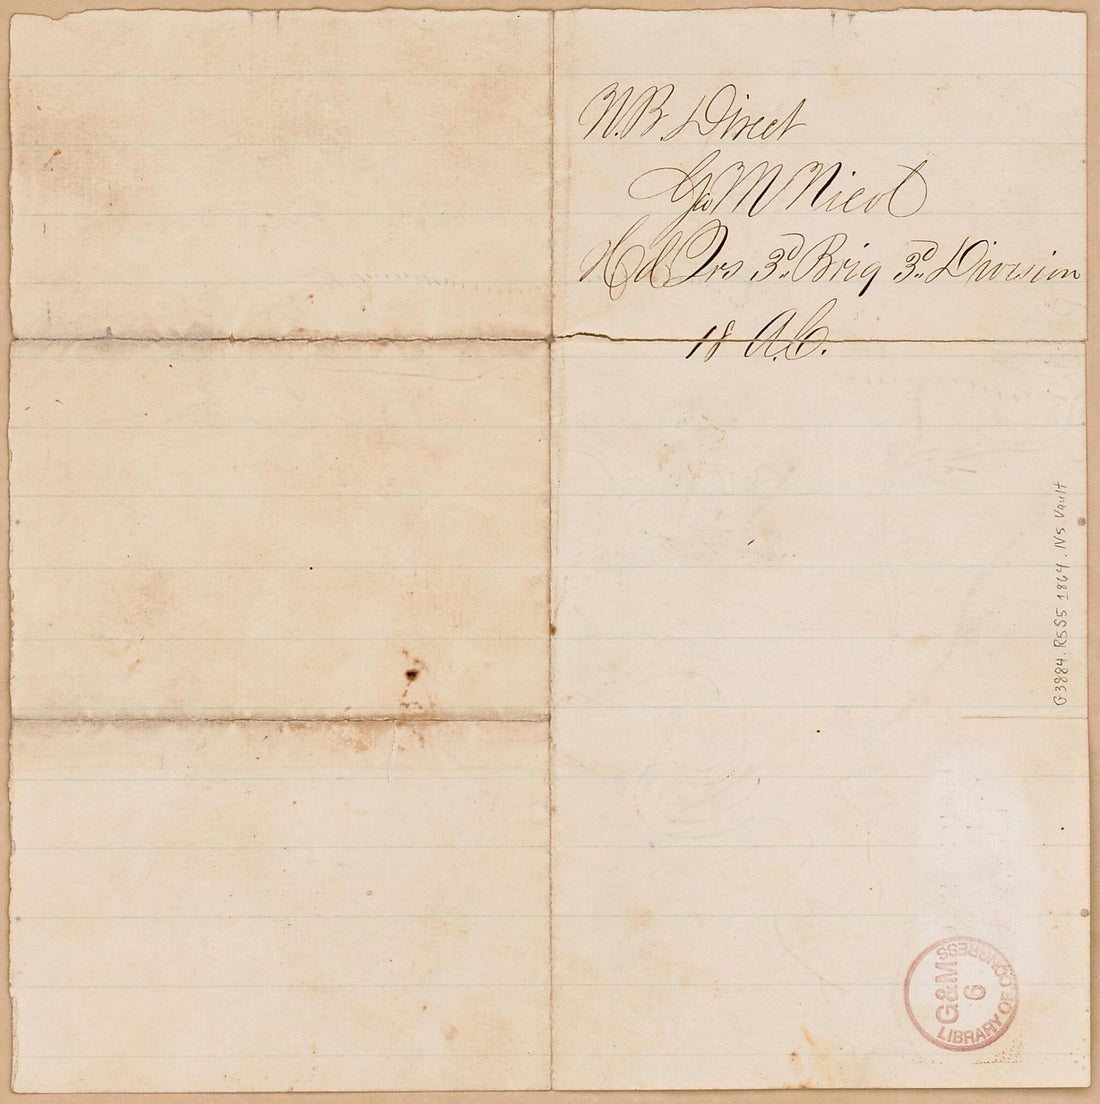 N.B. Direct
Geo M Nicol
Hd Qrs 3d Brig 3d Division
18 A.C.
G3884.R5S5 1864.N5 Vault
G&M
6
LIBRARY OF CONGRESS